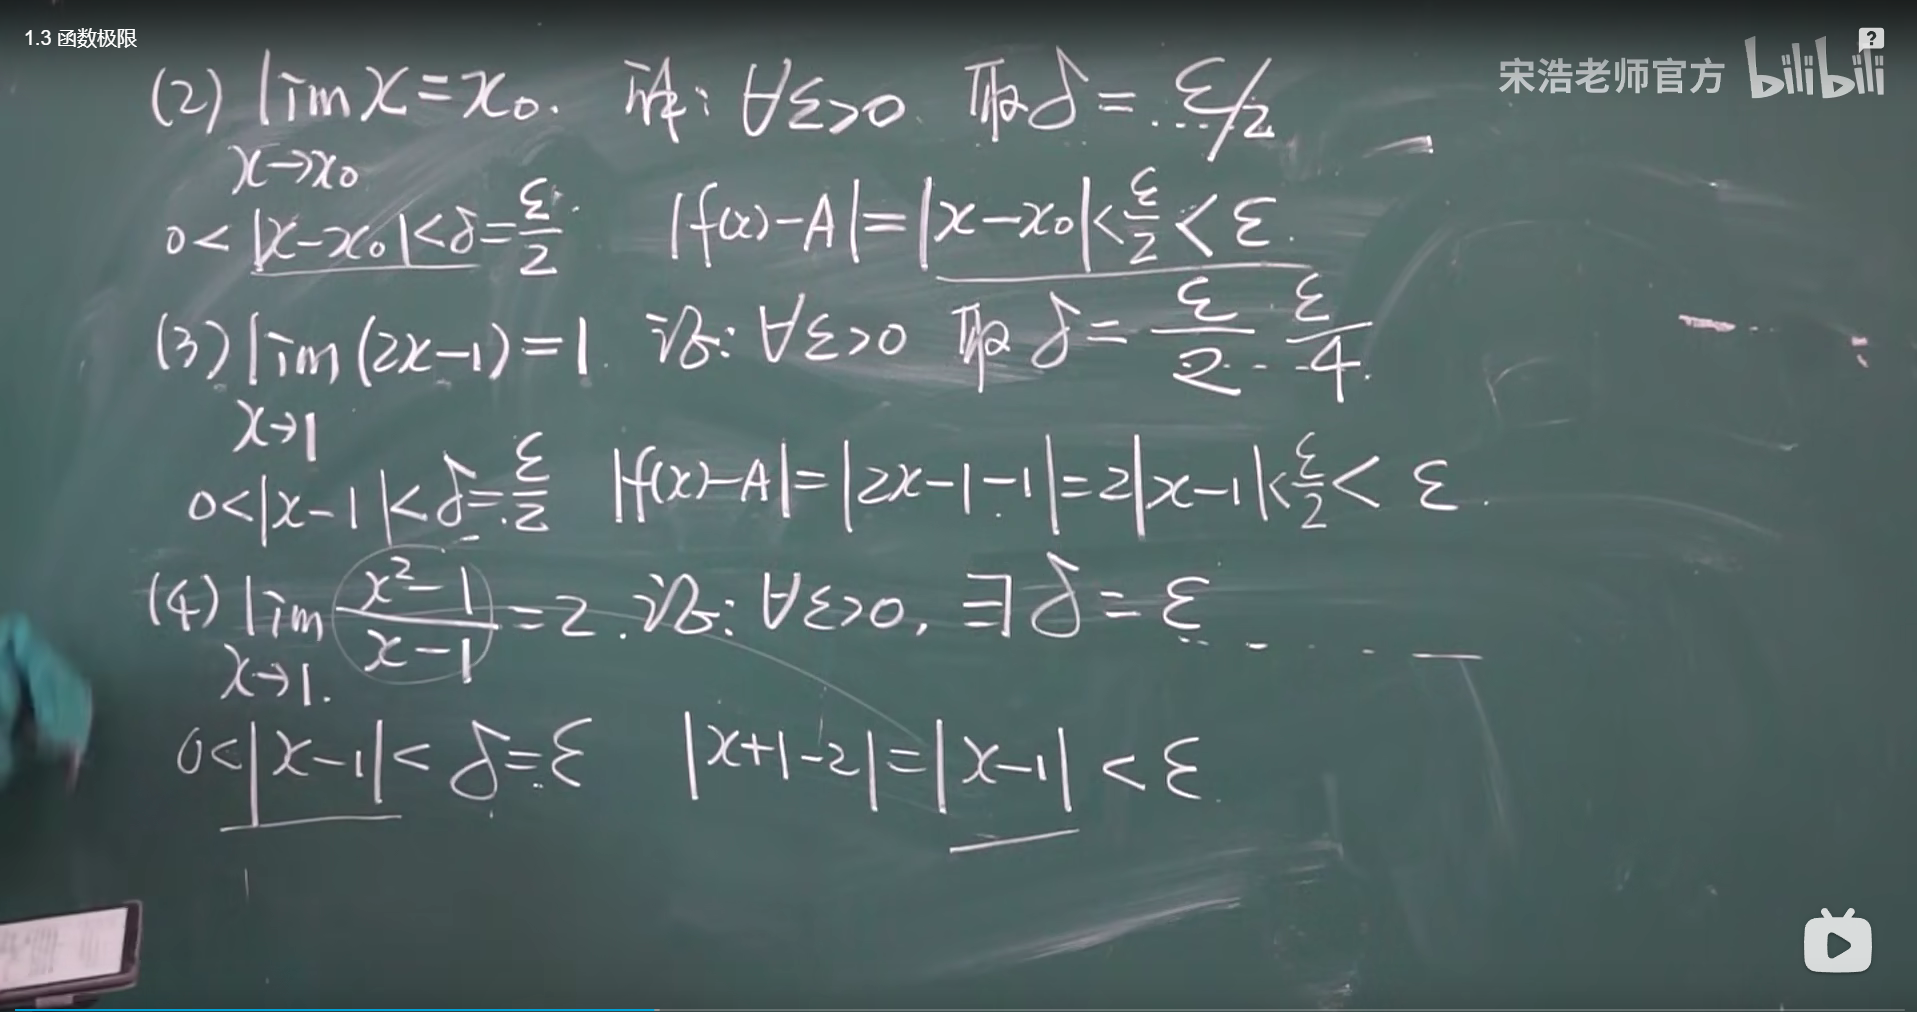 1.3 函数极限
宋浩老师官方 bilibili
(2) lim x = x₀. 证: ∀ε>0 取δ = ε/2
x→x₀
0<|x-x₀|<δ=ε/2 |f(x)-A|=|x-x₀|<ε/2<ε.
(3) lim (2x-1)=1. 证: ∀ε>0 取 δ = ε/2 ε/4.
x→1
0<|x-1|<δ=ε/2 |f(x)-A|=|2x-1-1|=2|x-1|<ε/2<ε.
(4) lim (x²-1)/(x-1) = 2. 证: ∀ε>0, ∃δ=ε
x→1.
0<|x-1|<δ=ε |x+1-2|=|x-1|<ε.